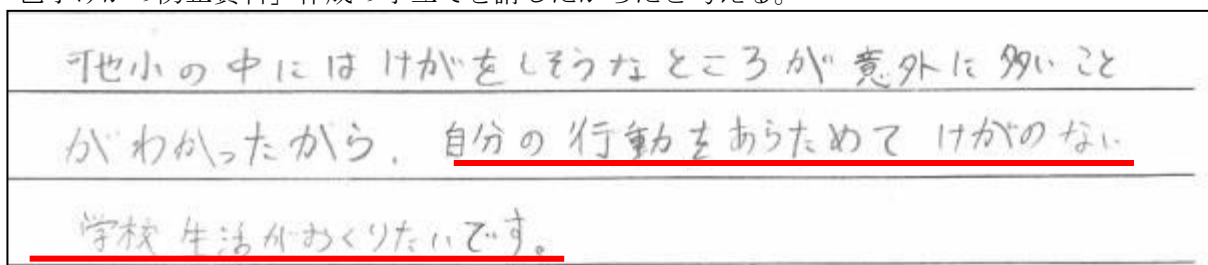 可也小の中にはけがをしそうなところが意外に多いこと
がわかったから、自分の行動をあらためてけがのない
学校生活がおくりたいです。